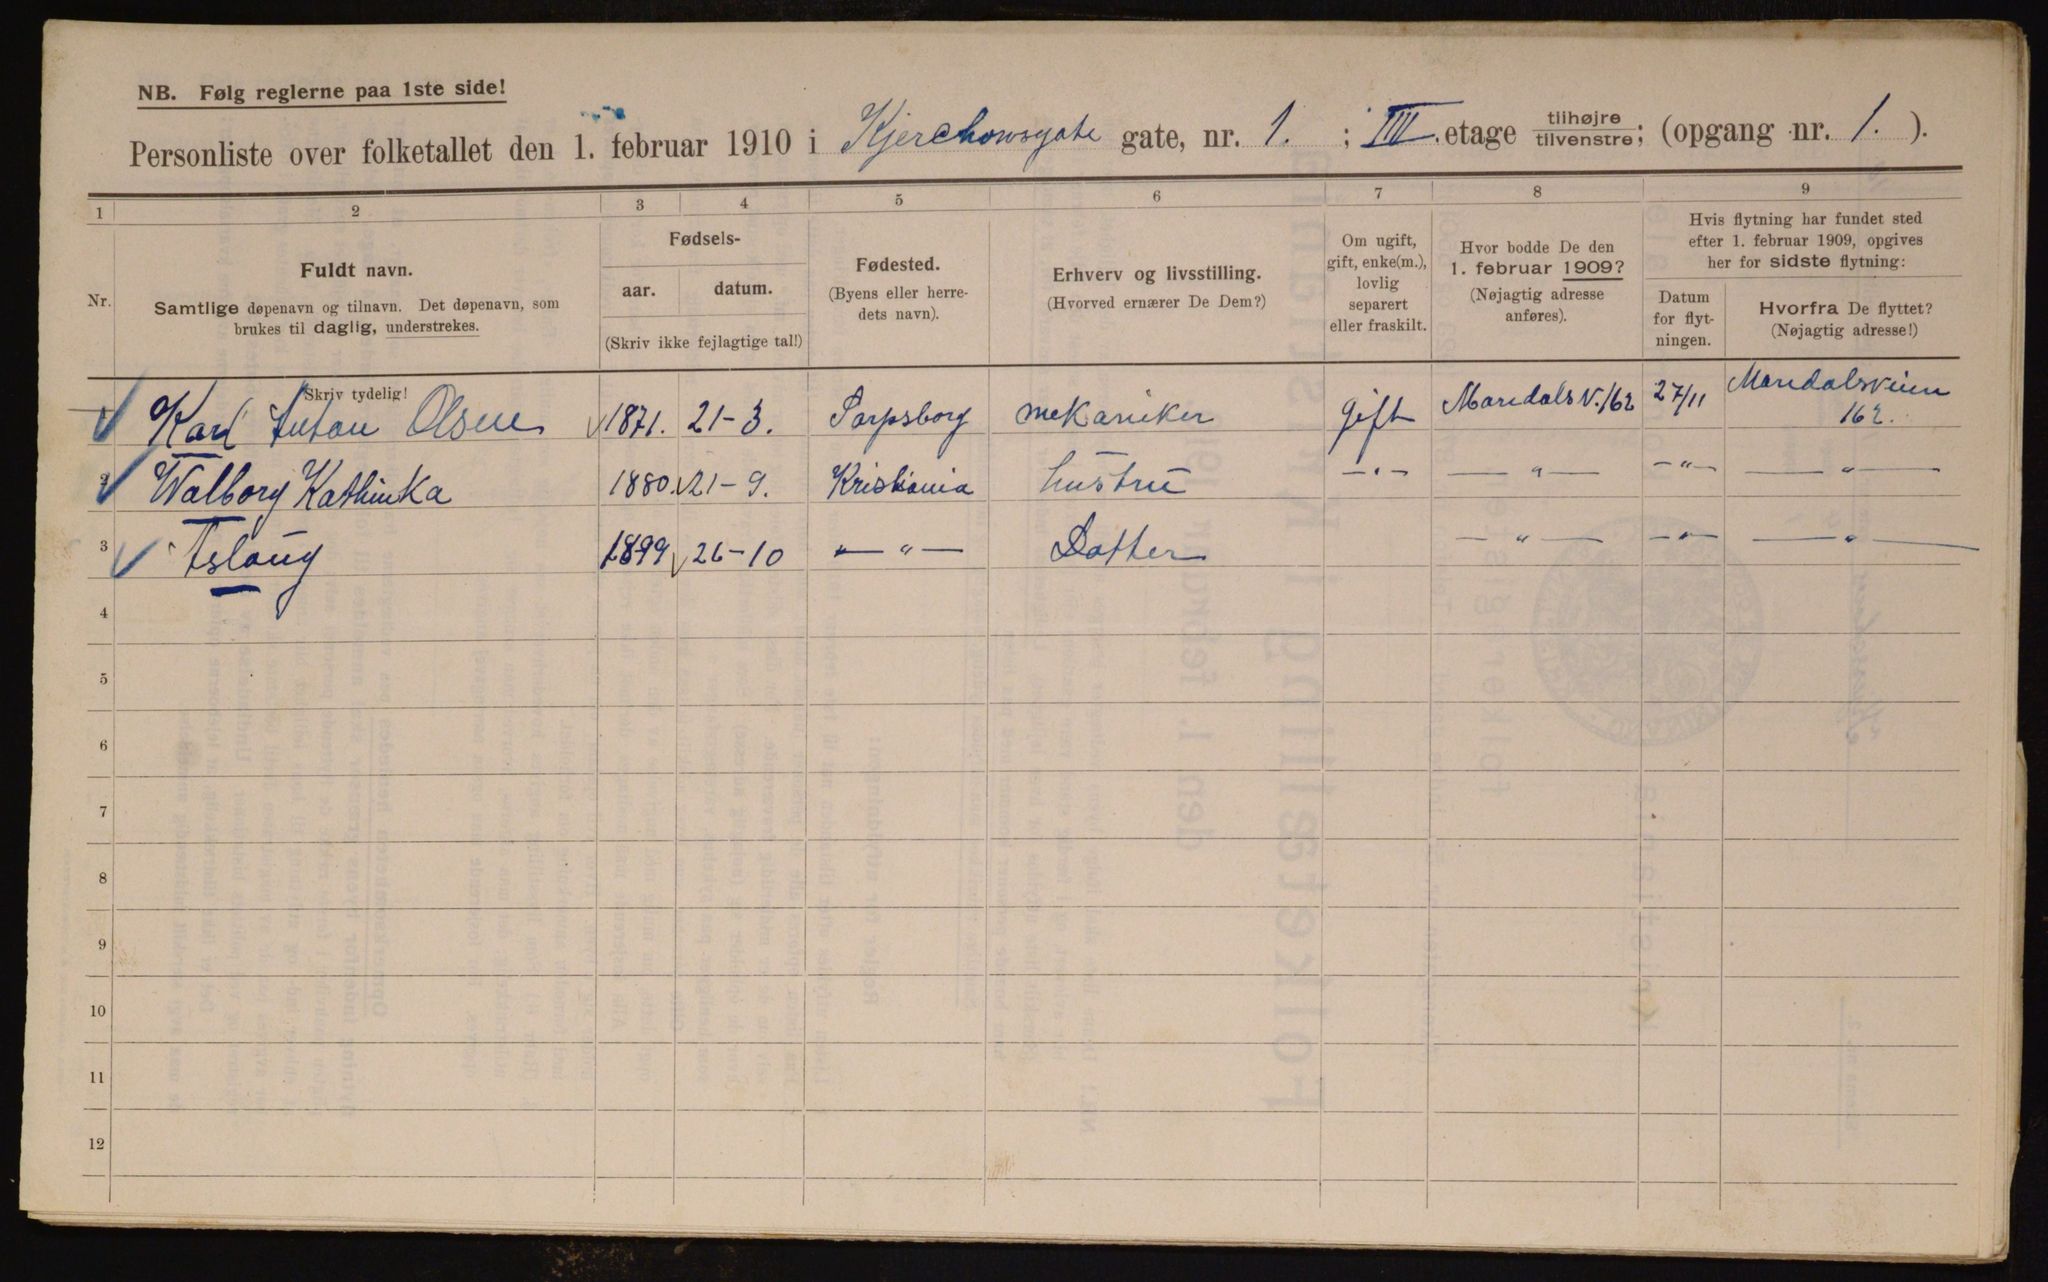 NB. Følg reglerne paa 1ste side!
Personliste over folketallet den 1. februar 1910 i Kjerchowsgate gate, nr. 1. ; III. etage tilhøjre/tilvenstre; (opgang nr. 1. ).
1 2 3 4 5 6 7 8 9
Nr.
Fuldt navn.
Samtlige døpenavn og tilnavn. Det døpenavn, som
brukes til daglig, understrekes.
Fødsels-
aar. datum.
(Skriv ikke fejlagtige tal!)
Fødested.
(Byens eller herre-
dets navn).
Erhverv og livsstilling.
(Hvorved ernærer De Dem?)
Om ugift,
gift, enke(m.),
lovlig
separert
eller fraskilt.
Hvor bodde De den
1. februar 1909?
(Nøjagtig adresse
anføres).
Hvis flytning har fundet sted
efter 1. februar 1909, opgives
her for sidste flytning:
Datum
for flyt-
ningen.
Hvorfra De flyttet?
(Nøjagtig adresse!)
Skriv tydelig!
Karl Anton Olsen 1871. 21-3. Sarpsborg mekaniker gift Maridals V. 162 27/11 Maridalsveien
162.
2 Walborg Kathinka 1880. 21-9. Kristiania hustru -"- -"- -"- -"-
3 Aslaug 1899 26-10 -"- Datter -"- -"- -"-
4
5
6
7
8
9
10
11
12